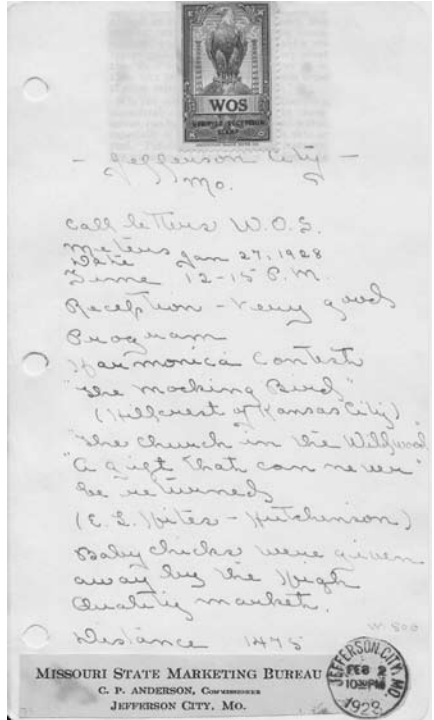 WOS
VERIFIED RECEPTION
STAMP
- Jefferson City -
Mo.
Call letters W.O.S.
Meters
Date Jan 27, 1928
Time 12-15 P.M.
Reception - Very good
Program
Harmonica Contest
"The Mocking Bird"
(Hillcrest of Kansas City)
"The Church in the Wildwood"
"A gift that can never
be returned
(E. L. Hites - Hutchinson)
Baby chicks were given
away by the High
Quality market.
Distance 1475
W-800
MISSOURI STATE MARKETING BUREAU
C. P. ANDERSON, COMMISSIONER
JEFFERSON CITY, MO.
JEFFERSON CITY, MO.
FEB 2
1928